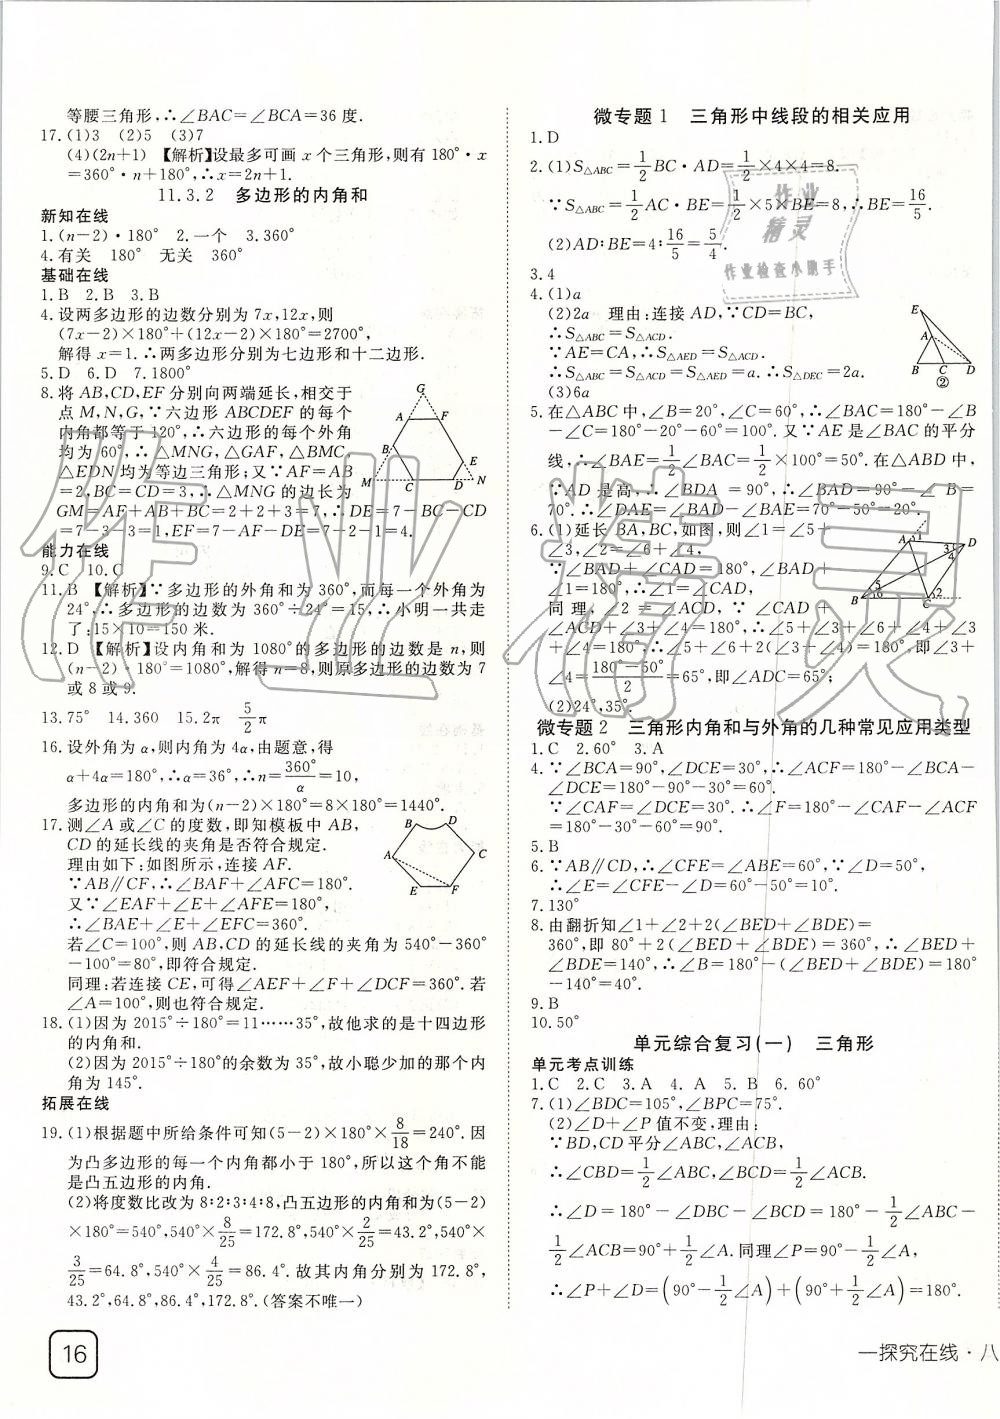 等腰三角形,∴∠BAC=∠BCA=36度.
17.(1)3 (2)5 (3)7
(4)(2n+1) 【解析】设最多可画x个三角形,则有180°·x
=360°·n+180°,∴x=2n+1.
11.3.2 多边形的内角和
新知在线
1.(n-2)·180° 2.一个 3.360°
4.有关 180° 无关 360°
基础在线
1.B 2.B 3.B
4.设两多边形的边数分别为7x,12x,则
(7x-2)×180°+(12x-2)×180°=2700°,
解得x=1.∴两多边形分别为七边形和十二边形.
5.D 6.D 7.1800°
8.将AB,CD,EF分别向两端延长,相交于
点M,N,G,∵六边形ABCDEF的每个
内角都等于120°,∴六边形的每个外角
均为60°,∴△MNG,△GAF,△BMC,
△EDN均为等边三角形;又∵AF=AB
=2,BC=CD=3,∴△MNG的边长为
GM=AF+AB+BC=2+2+3=7,∴DE=7-BC-CD
=7-3-3=1,EF=7-AF-DE=7-2-1=4.
能力在线
9.C 10.C
11.B 【解析】∵多边形的外角和为360°,而每一个外角为
24°,∴多边形的边数为360°÷24°=15,∴小明一共走
了:15×10=150米.
12.D 【解析】设内角和为1080°的多边形的边数是n,则
(n-2)·180°=1080°,解得n=8,则原多边形的边数为7
或8或9.
13.75° 14.360 15.2π 5/2π
16.设外角为α,则内角为4α,由题意,得
α+4α=180°,∴α=36°,∴n=360°/α=10,
多边形的内角和为(n-2)×180°=8×180°=1440°.
17.测∠A或∠C的度数,即知模板中AB,
CD的延长线的夹角是否符合规定.
理由如下:如图所示,连接AF.
∵AB∥CF,∴∠BAF+∠AFC=180°.
又∵∠EAF+∠E+∠AFE=180°,
∴∠BAE+∠E+∠EFC=360°.
若∠C=100°,则AB,CD的延长线的夹角为540°-360°
-100°=80°,即符合规定.
同理:若连接CE,可得∠AEF+∠F+∠DCF=360°.若
∠A=100°,则也符合规定.
18.(1)因为2015°÷180°=11……35°,故他求的是十四边形
的内角和.
(2)因为2015°÷180°的余数为35°,故小聪少加的那个内
角为145°.
拓展在线
19.(1)根据题中所给条件可知(5-2)×180°×8/18=240°.因
为凸多边形的每一个内角都小于180°,所以这个角不能
是凸五边形的内角.
(2)将度数比改为8:2:3:4:8,凸五边形的内角和为(5-2)
×180°=540°,540°×8/25=172.8°,540°×2/25=43.2°,540°×
3/25=64.8°,540°×4/25=86.4°.故其内角分别为172.8°,
43.2°,64.8°,86.4°,172.8°.(答案不唯一)
16
微专题1 三角形中线段的相关应用
1.D
2.(1)S△ABC=1/2BC·AD=1/2×4×4=8.
∵S△ABC=1/2AC·BE=1/2×5×BE=8,∴BE=16/5.
(2)AD:BE=4:16/5=5/4.
3.4
4.(1)a
(2)2a 理由:连接AD,∵CD=BC,
∴S△ABC=S△ACD.
∵AE=CA,∴S△AED=S△ACD.
∴S△ABC=S△ACD=S△AED=a.∴S△DEC=2a.
(3)6a
5.在△ABC中,∠B=20°,∠C=60°,∴∠BAC=180°-∠B
-∠C=180°-20°-60°=100°.又∵AE是∠BAC的平分
线,∴∠BAE=1/2∠BAC=1/2×100°=50°.在△ABD中,
∵AD是高,∴∠BDA=90°,∴∠BAD=90°-∠B=
70°.∴∠DAE=∠BAD-∠BAE=70°-50°=20°.
6.(1)延长BA,BC,如图,则∠1=∠5+
∠3,∠2=∠6+∠4,
∵∠BAD+∠CAD=100°,∠BAD+
∠1=180°,∴∠1=∠CAD,
同理,∠2=∠ACD,∵∠CAD+
∠ACD+∠3+∠4=180°,∴∠5+∠3+∠6+∠4+∠3+
∠4=180°;∴∠5+∠6+2(∠3+∠4)=180°,即∠3+
∠4=180°-50°/2=65°,即∠ADC=65°;
(2)24°,35°.
微专题2 三角形内角和与外角的几种常见应用类型
1.C 2.60° 3.A
4.∵∠BCA=90°,∠DCE=30°,∴∠ACF=180°-∠BCA-
∠DCE=180°-90°-30°=60°.
∵∠CAF=∠DCE=30°.∴∠F=180°-∠CAF-∠ACF
=180°-30°-60°=90°.
5.B
6.∵AB∥CD,∴∠CFE=∠ABE=60°,∵∠D=50°,
∴∠E=∠CFE-∠D=60°-50°=10°.
7.130°
8.由翻折知∠1+∠2+2(∠BED+∠BDE)=
360°,即80°+2(∠BED+∠BDE)=360°,∴∠BED+
∠BDE=140°,∴∠B=180°-(∠BED+∠BDE)=180°
-140°=40°.
9.B
10.50°
单元综合复习(一) 三角形
单元考点训练
1.C 2.C 3.A 4.A 5.B 6.60°
7.(1)∠BDC=105°,∠BPC=75°.
(2)∠D+∠P值不变,理由:
∵BD,CD平分∠ABC,∠ACB,
∴∠CBD=1/2∠ABC,∠BCD=1/2∠ACB.
∴∠D=180°-∠DBC-∠BCD=180°-1/2∠ABC-
1/2∠ACB=90°+1/2∠A.同理∠P=90°-1/2∠A,
∴∠P+∠D=(90°-1/2∠A)+(90°+1/2∠A)=180°.
一探究在线·八